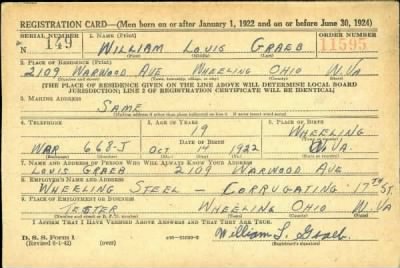 REGISTRATION CARD—(Men born on or after January 1, 1922 and on or before June 30, 1924)
SERIAL NUMBER 1. NAME (Print) ORDER NUMBER
N 149 WILLIAM LOUIS GRAEB 11595
(First) (Middle) (Last)
2. PLACE OF RESIDENCE (Print)
2109 WARWOOD AVE WHEELING OHIO W.VA
(Number and street) (Town, township, village, or city) (County) (State)
[THE PLACE OF RESIDENCE GIVEN ON THE LINE ABOVE WILL DETERMINE LOCAL BOARD
JURISDICTION; LINE 2 OF REGISTRATION CERTIFICATE WILL BE IDENTICAL]
3. MAILING ADDRESS
SAME
[Mailing address if other than place indicated on line 2. If same insert word same]
4. TELEPHONE 5. AGE IN YEARS 6. PLACE OF BIRTH
19 WHEELING
DATE OF BIRTH (Town or county)
WAR 668-J OCT 14 1922 W.VA.
(Exchange) (Number) (Mo.) (Day) (Yr.) (State or country)
7. NAME AND ADDRESS OF PERSON WHO WILL ALWAYS KNOW YOUR ADDRESS
LOUIS GRAEB 2109 WARWOOD AVE
8. EMPLOYER'S NAME AND ADDRESS
WHEELING STEEL — CORRUGATING 17TH ST
9. PLACE OF EMPLOYMENT OR BUSINESS
TESTER WHEELING OHIO W.VA
(Number and street or R. F. D. number) (Town) (County) (State)
I AFFIRM THAT I HAVE VERIFIED ABOVE ANSWERS AND THAT THEY ARE TRUE.
D. S. S. Form 1
(Revised 6-1-42) (over) William L. Graeb
(Registrant's signature)